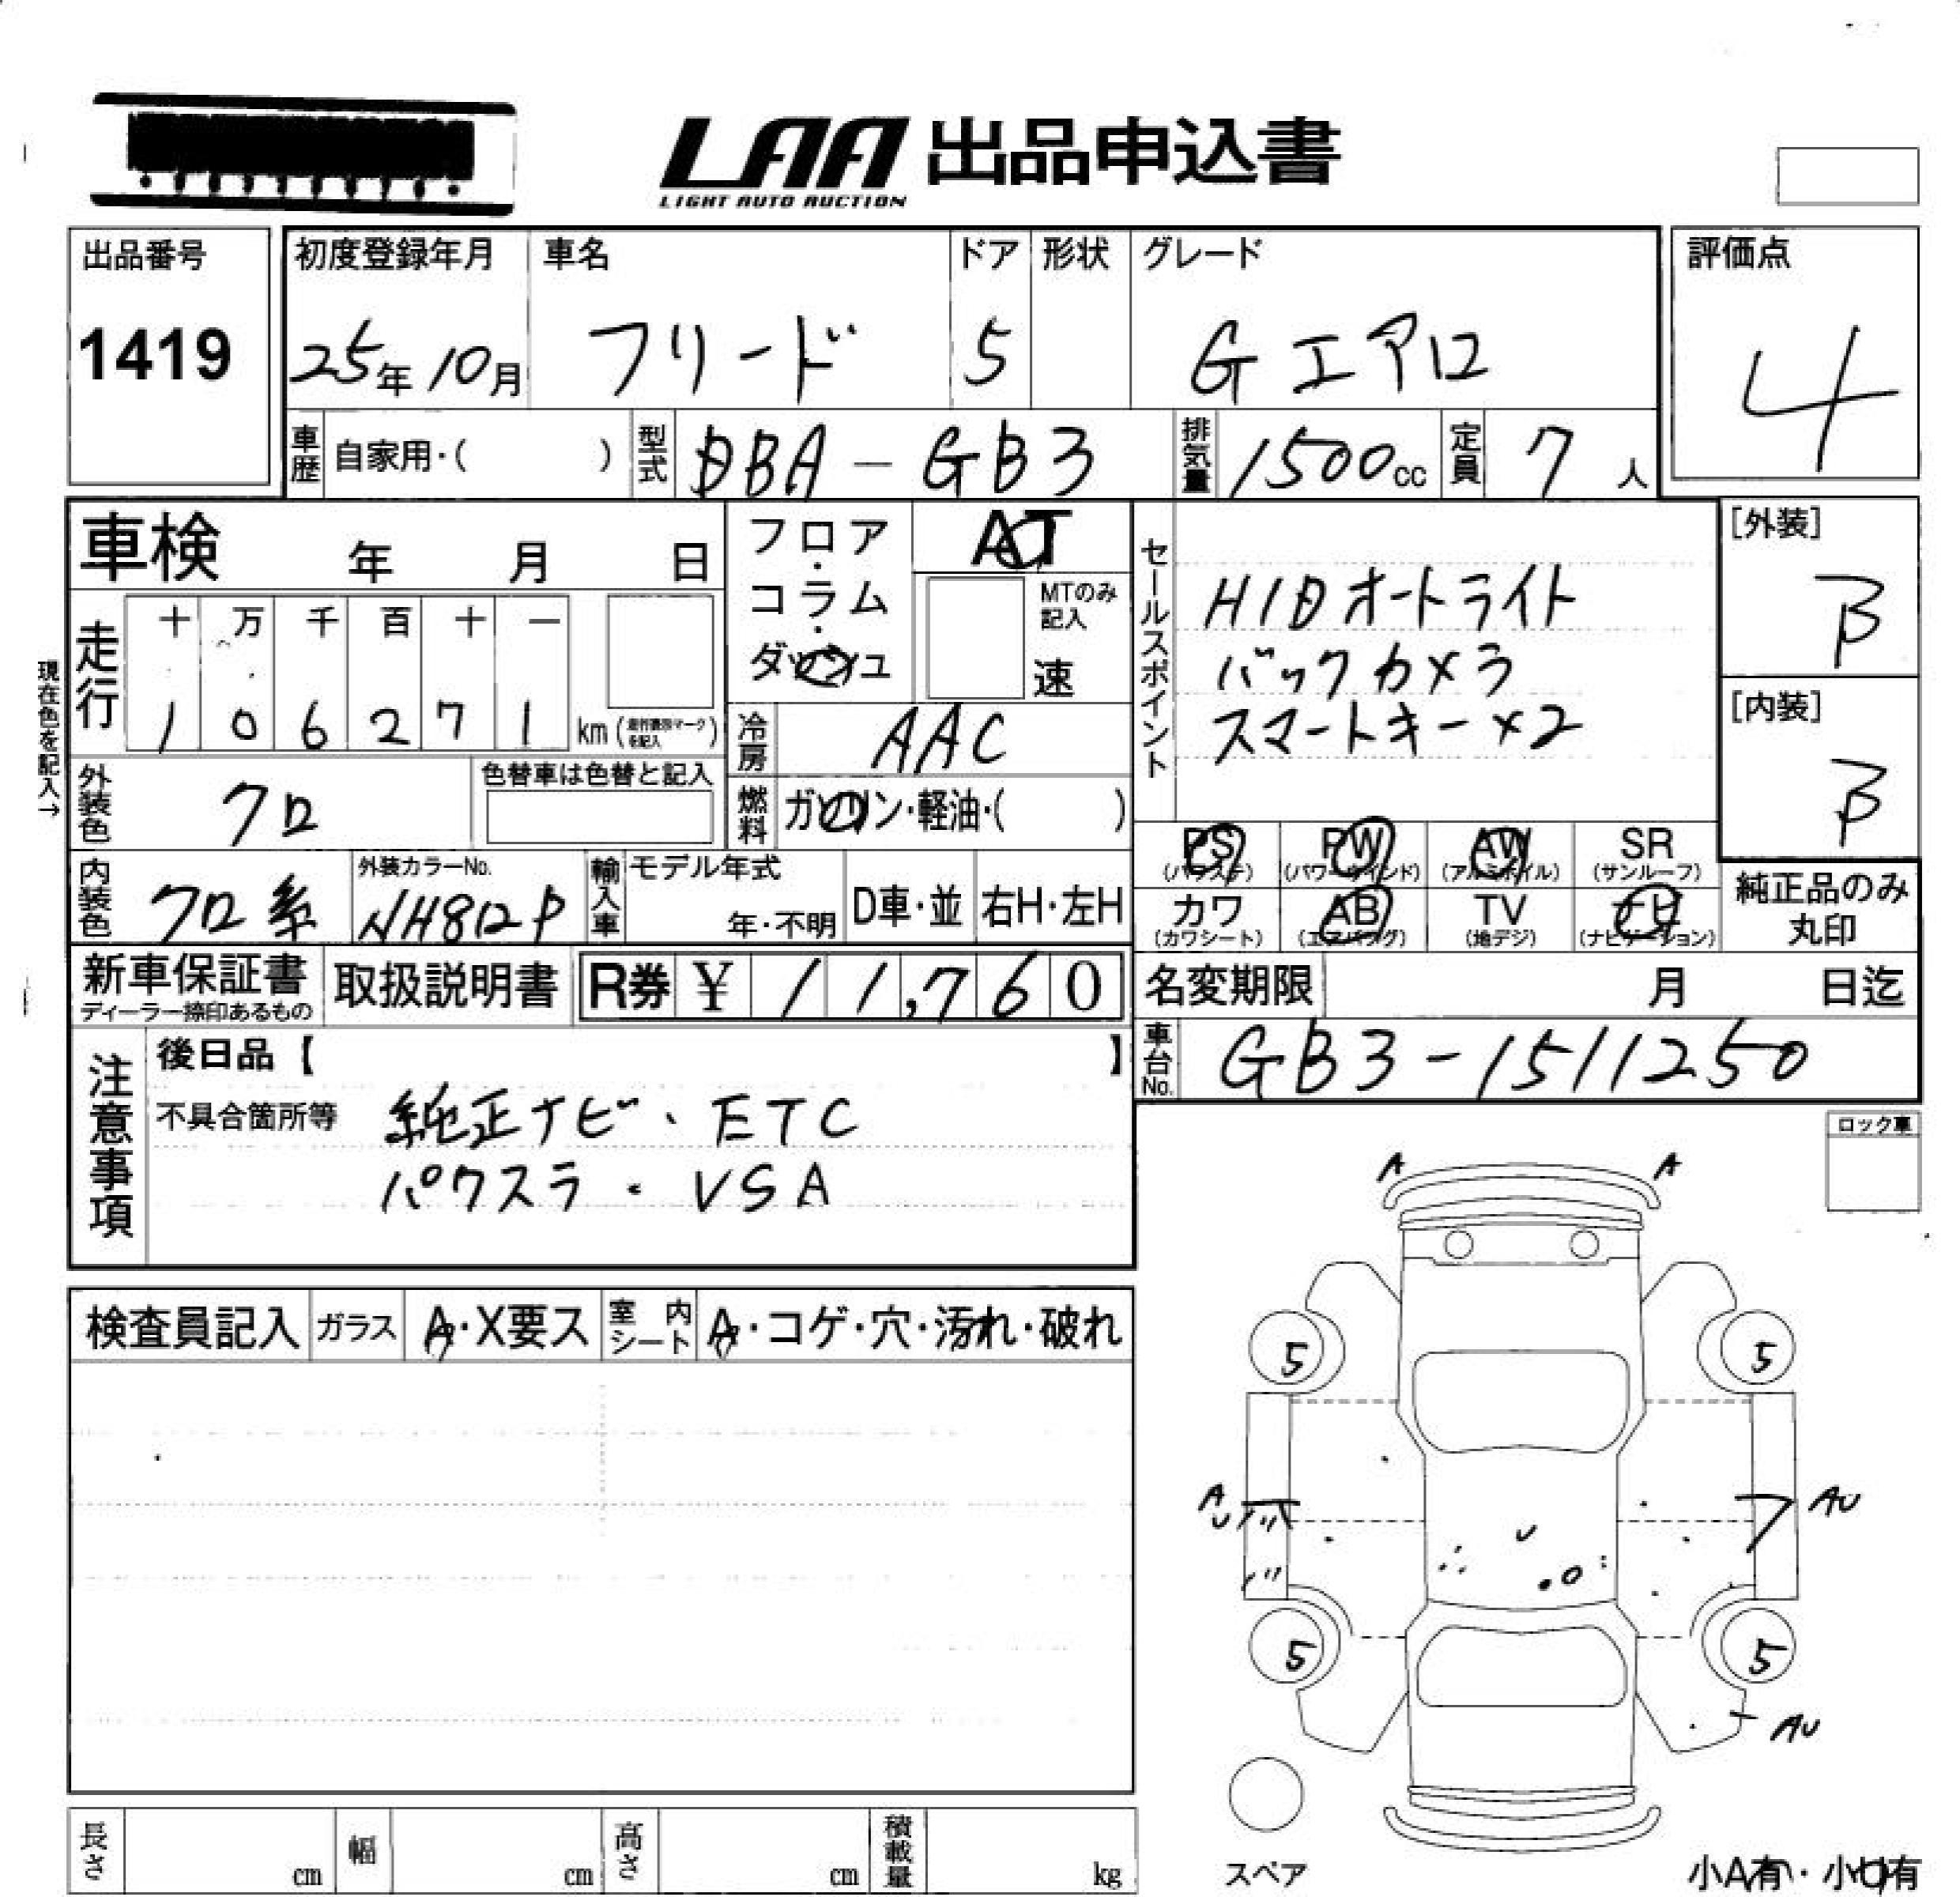 LAA 出品申込書
LIGHT AUTO AUCTION
出品番号
1419
初度登録年月
25年10月
車名
フリード
ドア
5
形状
グレード
Gエアロ
評価点
4
車歴 自家用・( )
型式 DBA-GB3
排気量 1500cc
定員 7人
車検 年 月 日
フロア・コラム・ダッシュ
AT
MTのみ記入
速
セールスポイント
HIDオートライト
バックカメラ
スマートキー×2
[外装]
B
[内装]
B
現在色を記入→
走行
十 万 千 百 十 一
1 0 6 2 7 1 km(走行表示マークを記入)
冷房 AAC
外装色 クロ
色替車は色替と記入
燃料 ガソリン・軽油・( )
PS (パワステ)
PW (パワーウインド)
AW (アルミホイル)
SR (サンルーフ)
カワ (カワシート)
AB (エアバッグ)
TV (地デジ)
ナビ (ナビゲーション)
純正品のみ丸印
内装色 クロ系
外装カラーNo.
NH812P
輸入車
モデル年式
年・不明
D車・並
右H・左H
新車保証書
ディーラー捺印あるもの
取扱説明書
R券 ¥ 11,760
名変期限 月 日迄
車台No. GB3-1511250
注意事項
後日品【 】
不具合箇所等
純正ナビ・ETC
パワスラ・VSA
ロック車
A A
検査員記入
ガラス A・X要ス
室内シート A・コゲ・穴・汚れ・破れ
5 5
A
U
AU
U
5 5
AU
長さ cm
幅 cm
高さ cm
積載量 kg
スペア
小A有・小U有